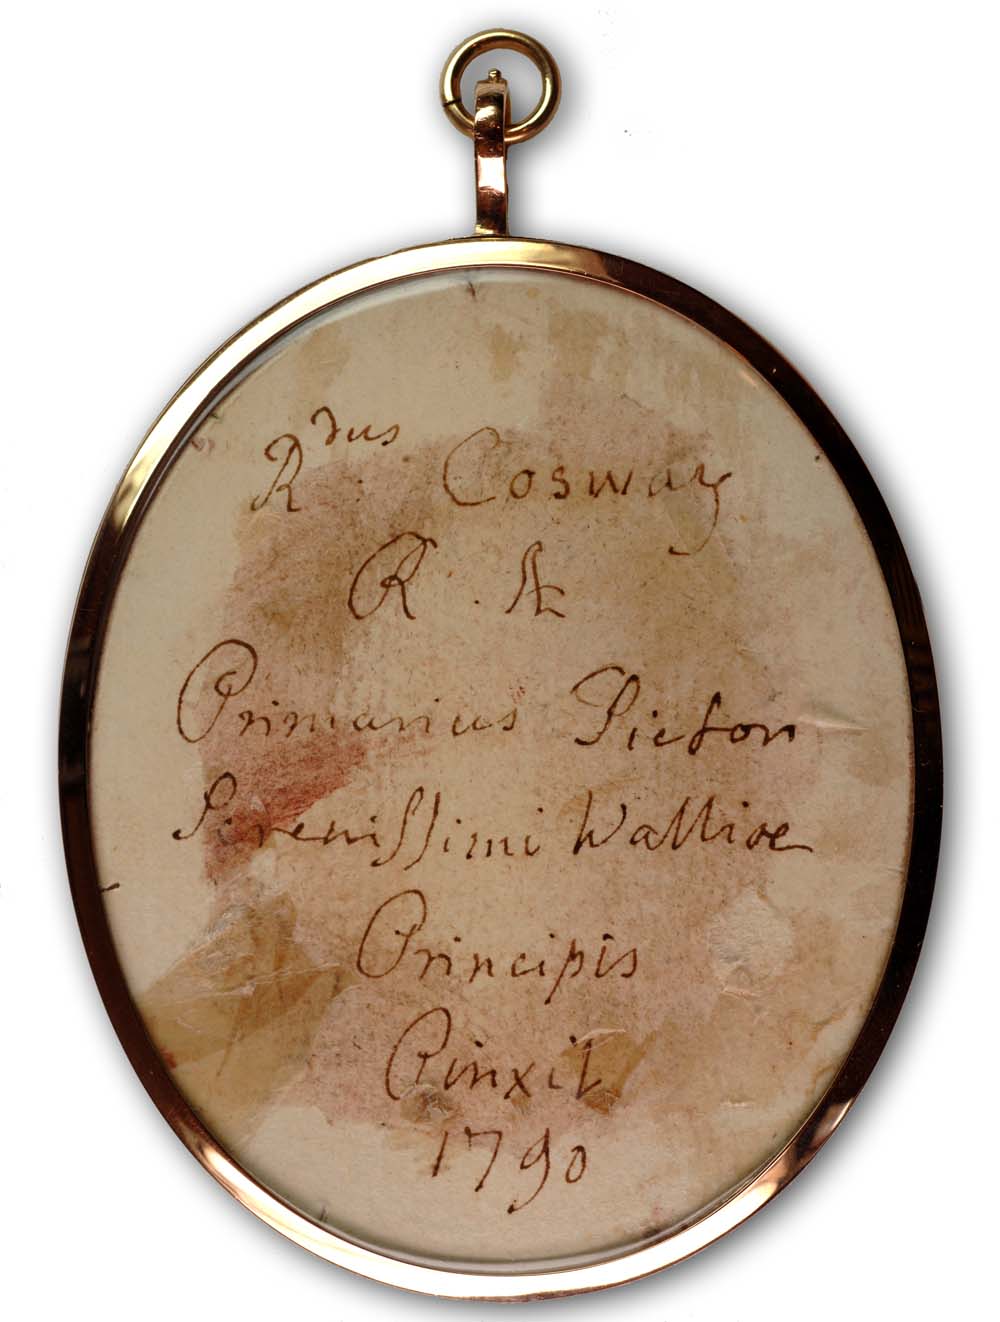 Rdus Cosway
R. A
Primarius Pictor
Serenissimi Walliae
Principis
Pinxit
1790